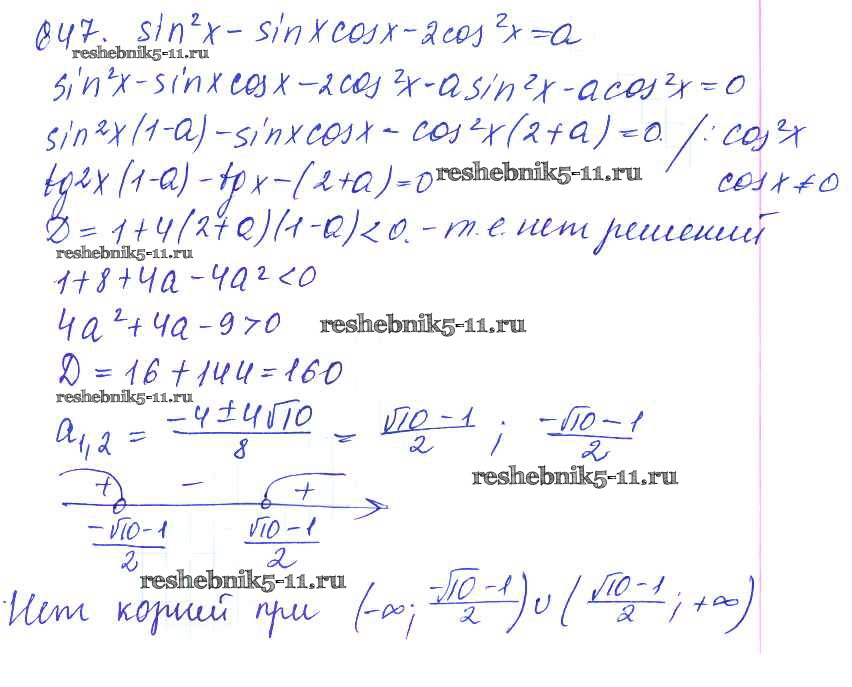 847. sin²x - sinxcosx - 2cos²x = a
reshebnik5-11.ru
sin²x - sinxcosx - 2cos²x - a sin²x - a cos²x = 0
sin²x(1-a) - sinxcosx - cos²x(2+a) = 0. /: cos²x
tg²x(1-a) - tgx - (2+a) = 0 reshebnik5-11.ru cosx ≠ 0
D = 1 + 4(2+a)(1-a) < 0. - т.е. нет решений
reshebnik5-11.ru
1 + 8 + 4a - 4a² < 0
4a² + 4a - 9 > 0 reshebnik5-11.ru
D = 16 + 144 = 160
reshebnik5-11.ru
a₁,₂ = (-4 ± 4√10)/8 = (√10 - 1)/2 ; (-√10 - 1)/2
reshebnik5-11.ru
+ - +
(-√10 - 1)/2 (√10 - 1)/2
reshebnik5-11.ru
Нет корней при (-∞; (-√10 - 1)/2) ∪ ((√10 - 1)/2; +∞)